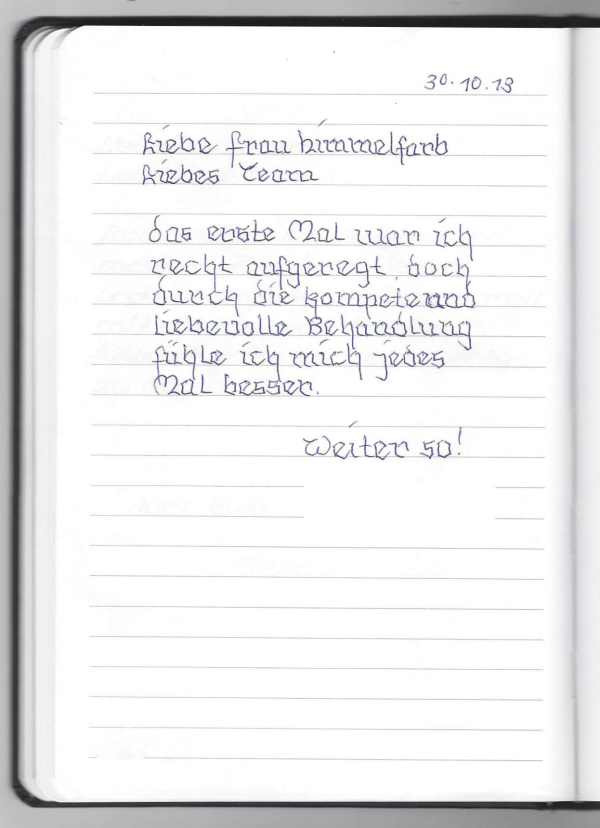 30.10.13
Liebe Frau Himmelfarb
Liebes Team
das erste Mal war ich
recht aufgeregt, doch
durch die kompetente und
liebevolle Behandlung
fühle ich mich jedes
Mal besser.
Weiter so!